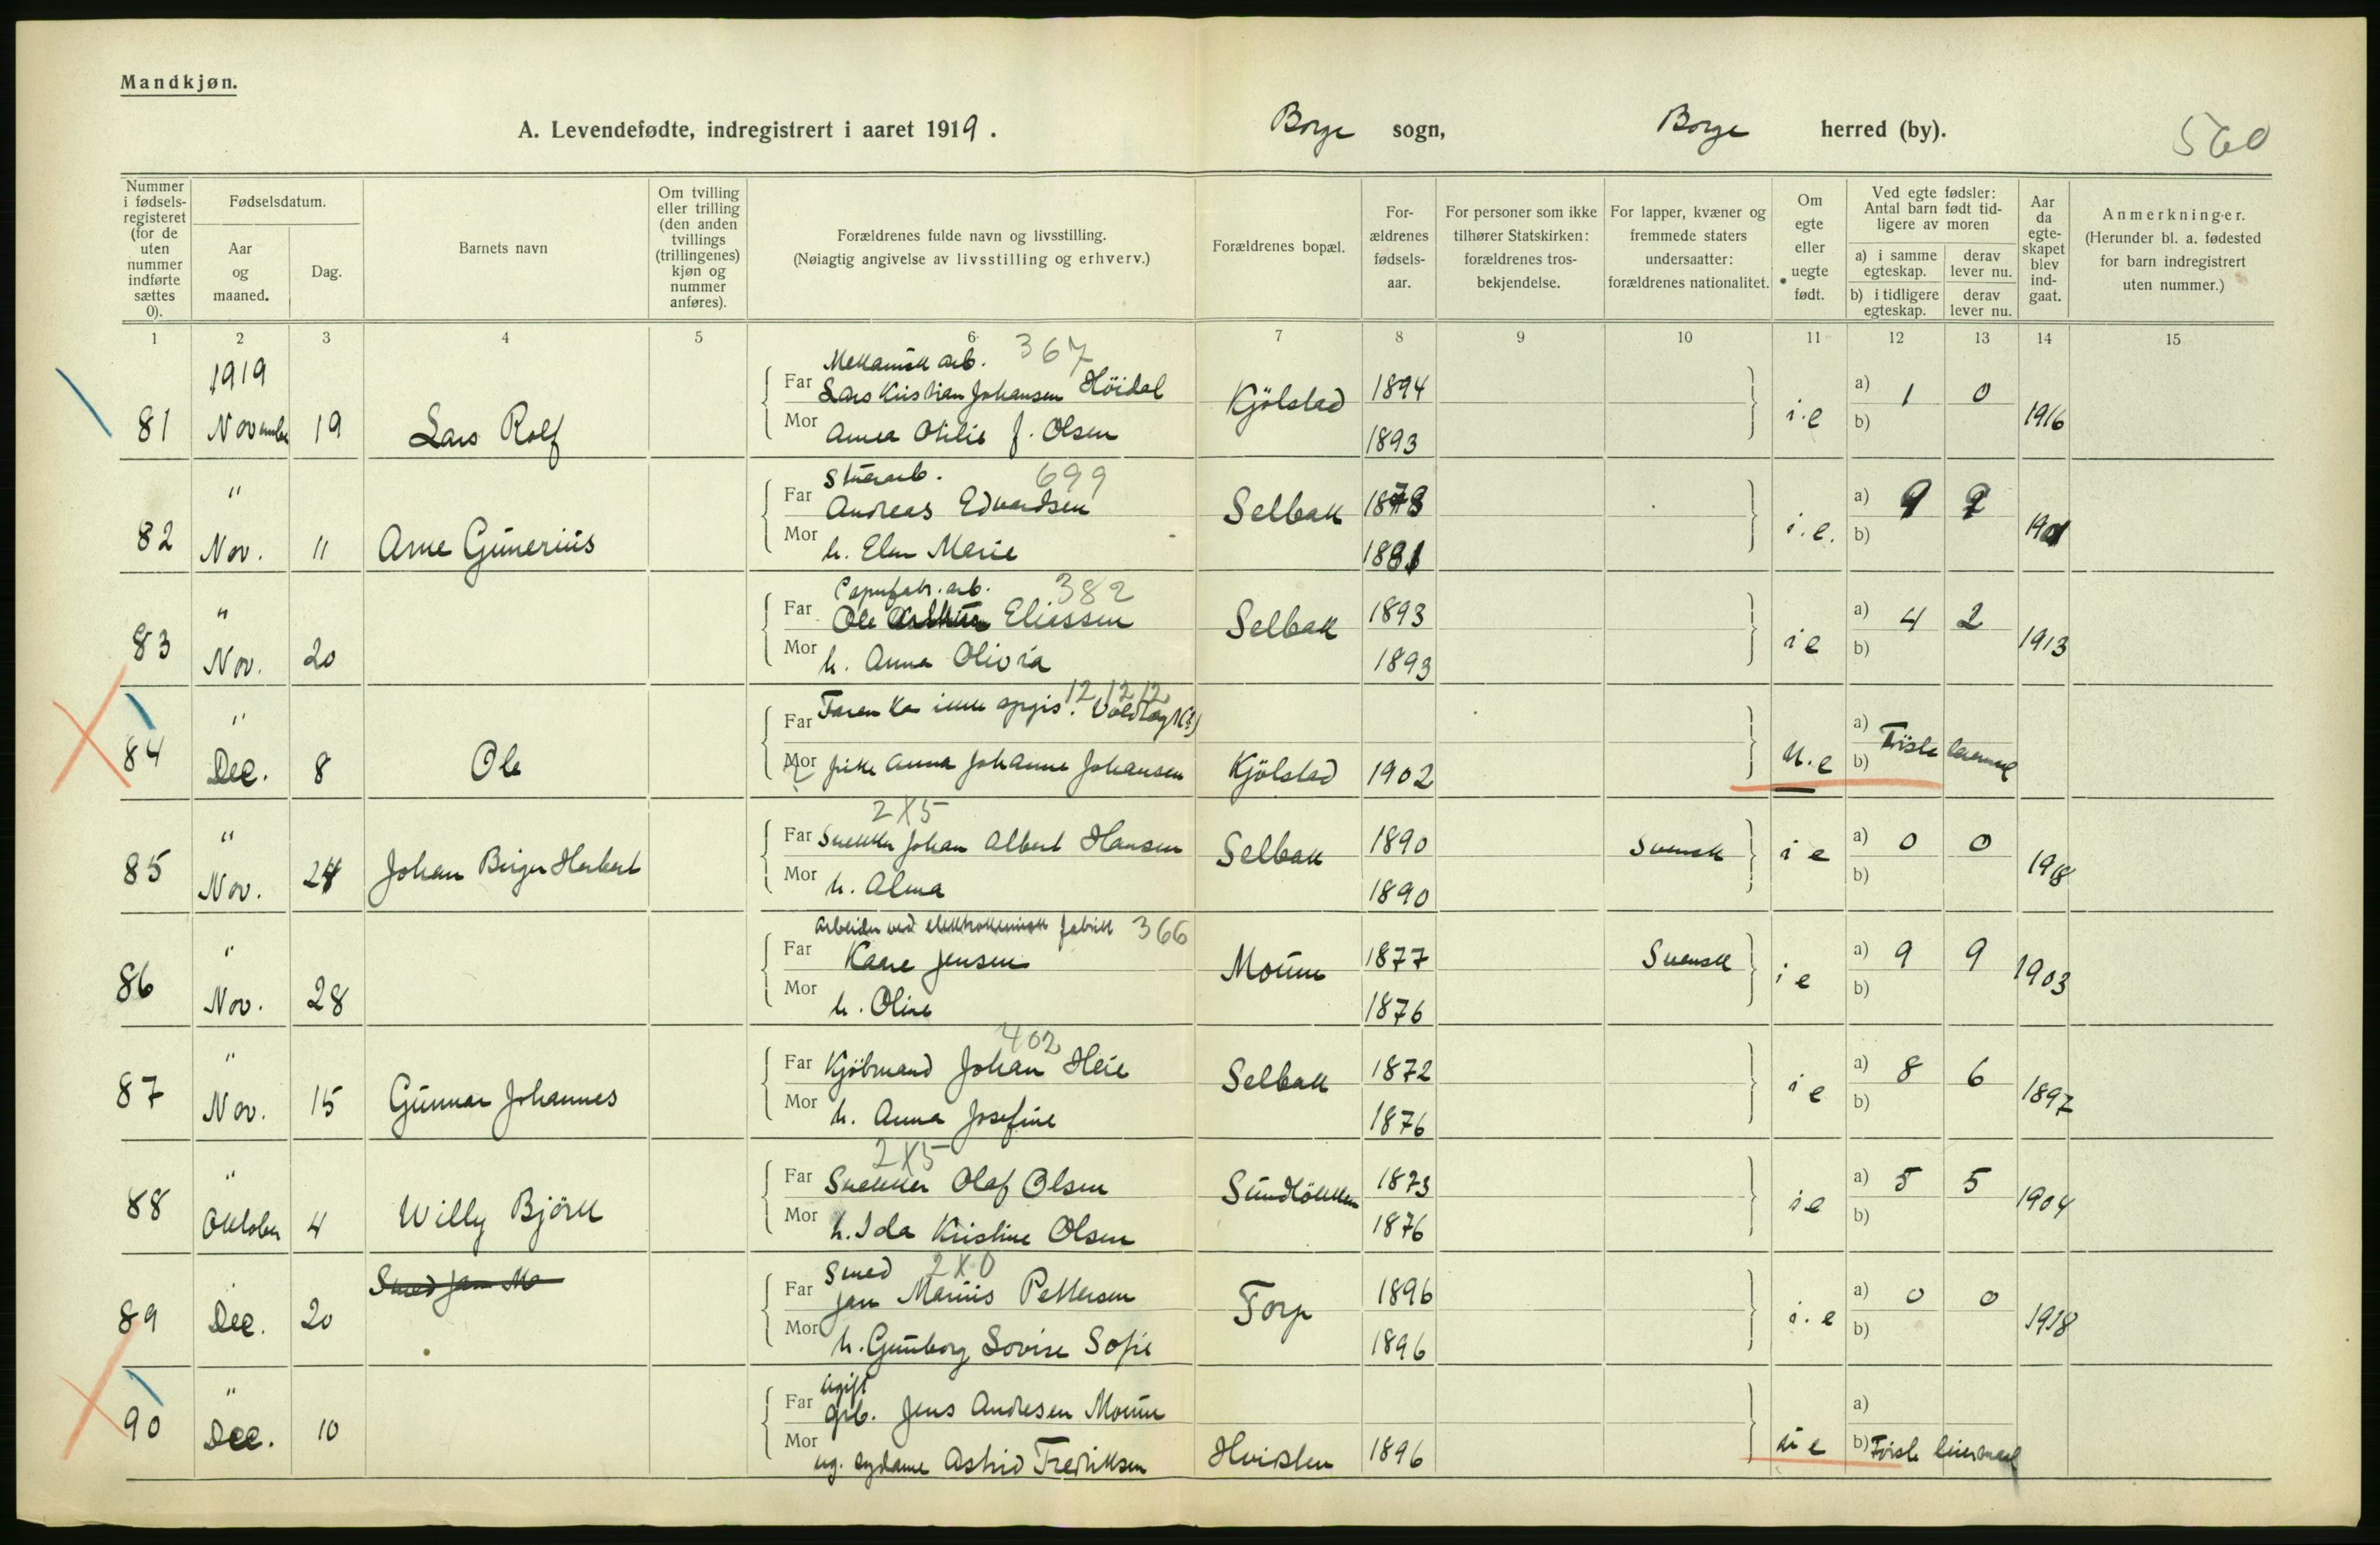 Mandkjøn.
A. Levendefødte, indregistrert i aaret 1919. Borge sogn, Borge herred (by). 560
Nummer i fødselsregisteret (for de uten nummer indførte sættes 0).
Fødselsdatum.
Aar og maaned.
Dag.
Barnets navn
Om tvilling eller trilling (den anden tvillings (trillingenes) kjøn og nummer anføres).
Forældrenes fulde navn og livsstilling.
(Nøiagtig angivelse av livsstilling og erhverv.)
Forældrenes bopæl.
Forældrenes fødselsaar.
For personer som ikke tilhører Statskirken: forældrenes trosbekjendelse.
For lapper, kvæner og fremmede staters undersaatter: forældrenes nationalitet.
Om egte eller uegte født.
Ved egte fødsler: Antal barn født tidligere av moren
a) i samme egteskap. derav lever nu.
b) i tidligere egteskap. derav lever nu.
Aar da egteskapet blev indgaat.
Anmerkninger.
(Herunder bl. a. fødested for barn indregistrert uten nummer.)
1 2 3 4 5 6 7 8 9 10 11 12 13 14 15
1919
Mekanisk arb. 367
Far Lars Kristian Johansen Höidal Kjölstad 1894 a) 1 0
81 November 19 Lars Rolf i.e 1916
Mor Anna Otilie f. Olsen 1893 b)
" Stuearb. 699
Far Andreas Edvardsen Selbak 1878 a) 9
82 Nov. 11 Arne Günerius i.e. 1901
Mor h. Elen Marie 1881 b)
" Papirfabr. arb. 382
Far Ole Eliassen Selbak 1893 a) 4 2
83 Nov. 20 i e 1913
Mor h. Anna Olivia 1893 b)
" 12.12.12
Far Faren ka ikke opgis. Voldtagt(?) a)
84 Dec. 8 Ole u.e Förste leiermaal
Mor pike Anna Johanne Johansen Kjölstad 1902 b)
" 2X5
Far Snekker Johan Albert Hansen Selbak 1890 Svensk a) 0 0
85 Nov. 24 Johan Birger Herbert i e 1918
Mor h. Alma 1890 b)
" Arbeider ved elektrokemisk fabrik 366
Far Kaare Jensen Moum 1877 Svensk a) 9 9
86 Nov. 28 i e 1903
Mor h. Oline 1876 b)
" 402
Far Kjöbmand Johan Heie Selbak 1872 a) 8 6
87 Nov. 15 Günnar Johannes i e 1897
Mor h. Anna Josefine 1876 b)
" 2X5
Far Snekker Olaf Olsen Sundlökken 1873 a) 5 5
88 Oktober 4 Willy Björk i e 1904
Mor h. Ida Kristine Olsen 1876 b)
Smed Jan Ma
Smed 2X0
Far Jan Marius Pettersen Torp 1896 a) 0 0
89 Dec. 20 i.e 1918
Mor h. Günborg Lovise Sofie 1896 b)
" ugift
Far grb. Jens Andresen Moum a)
90 Dec. 10 u e
Mor ug. sydame Astrid Fredriksen Hvidsten 1896 b) Förste leiermaal